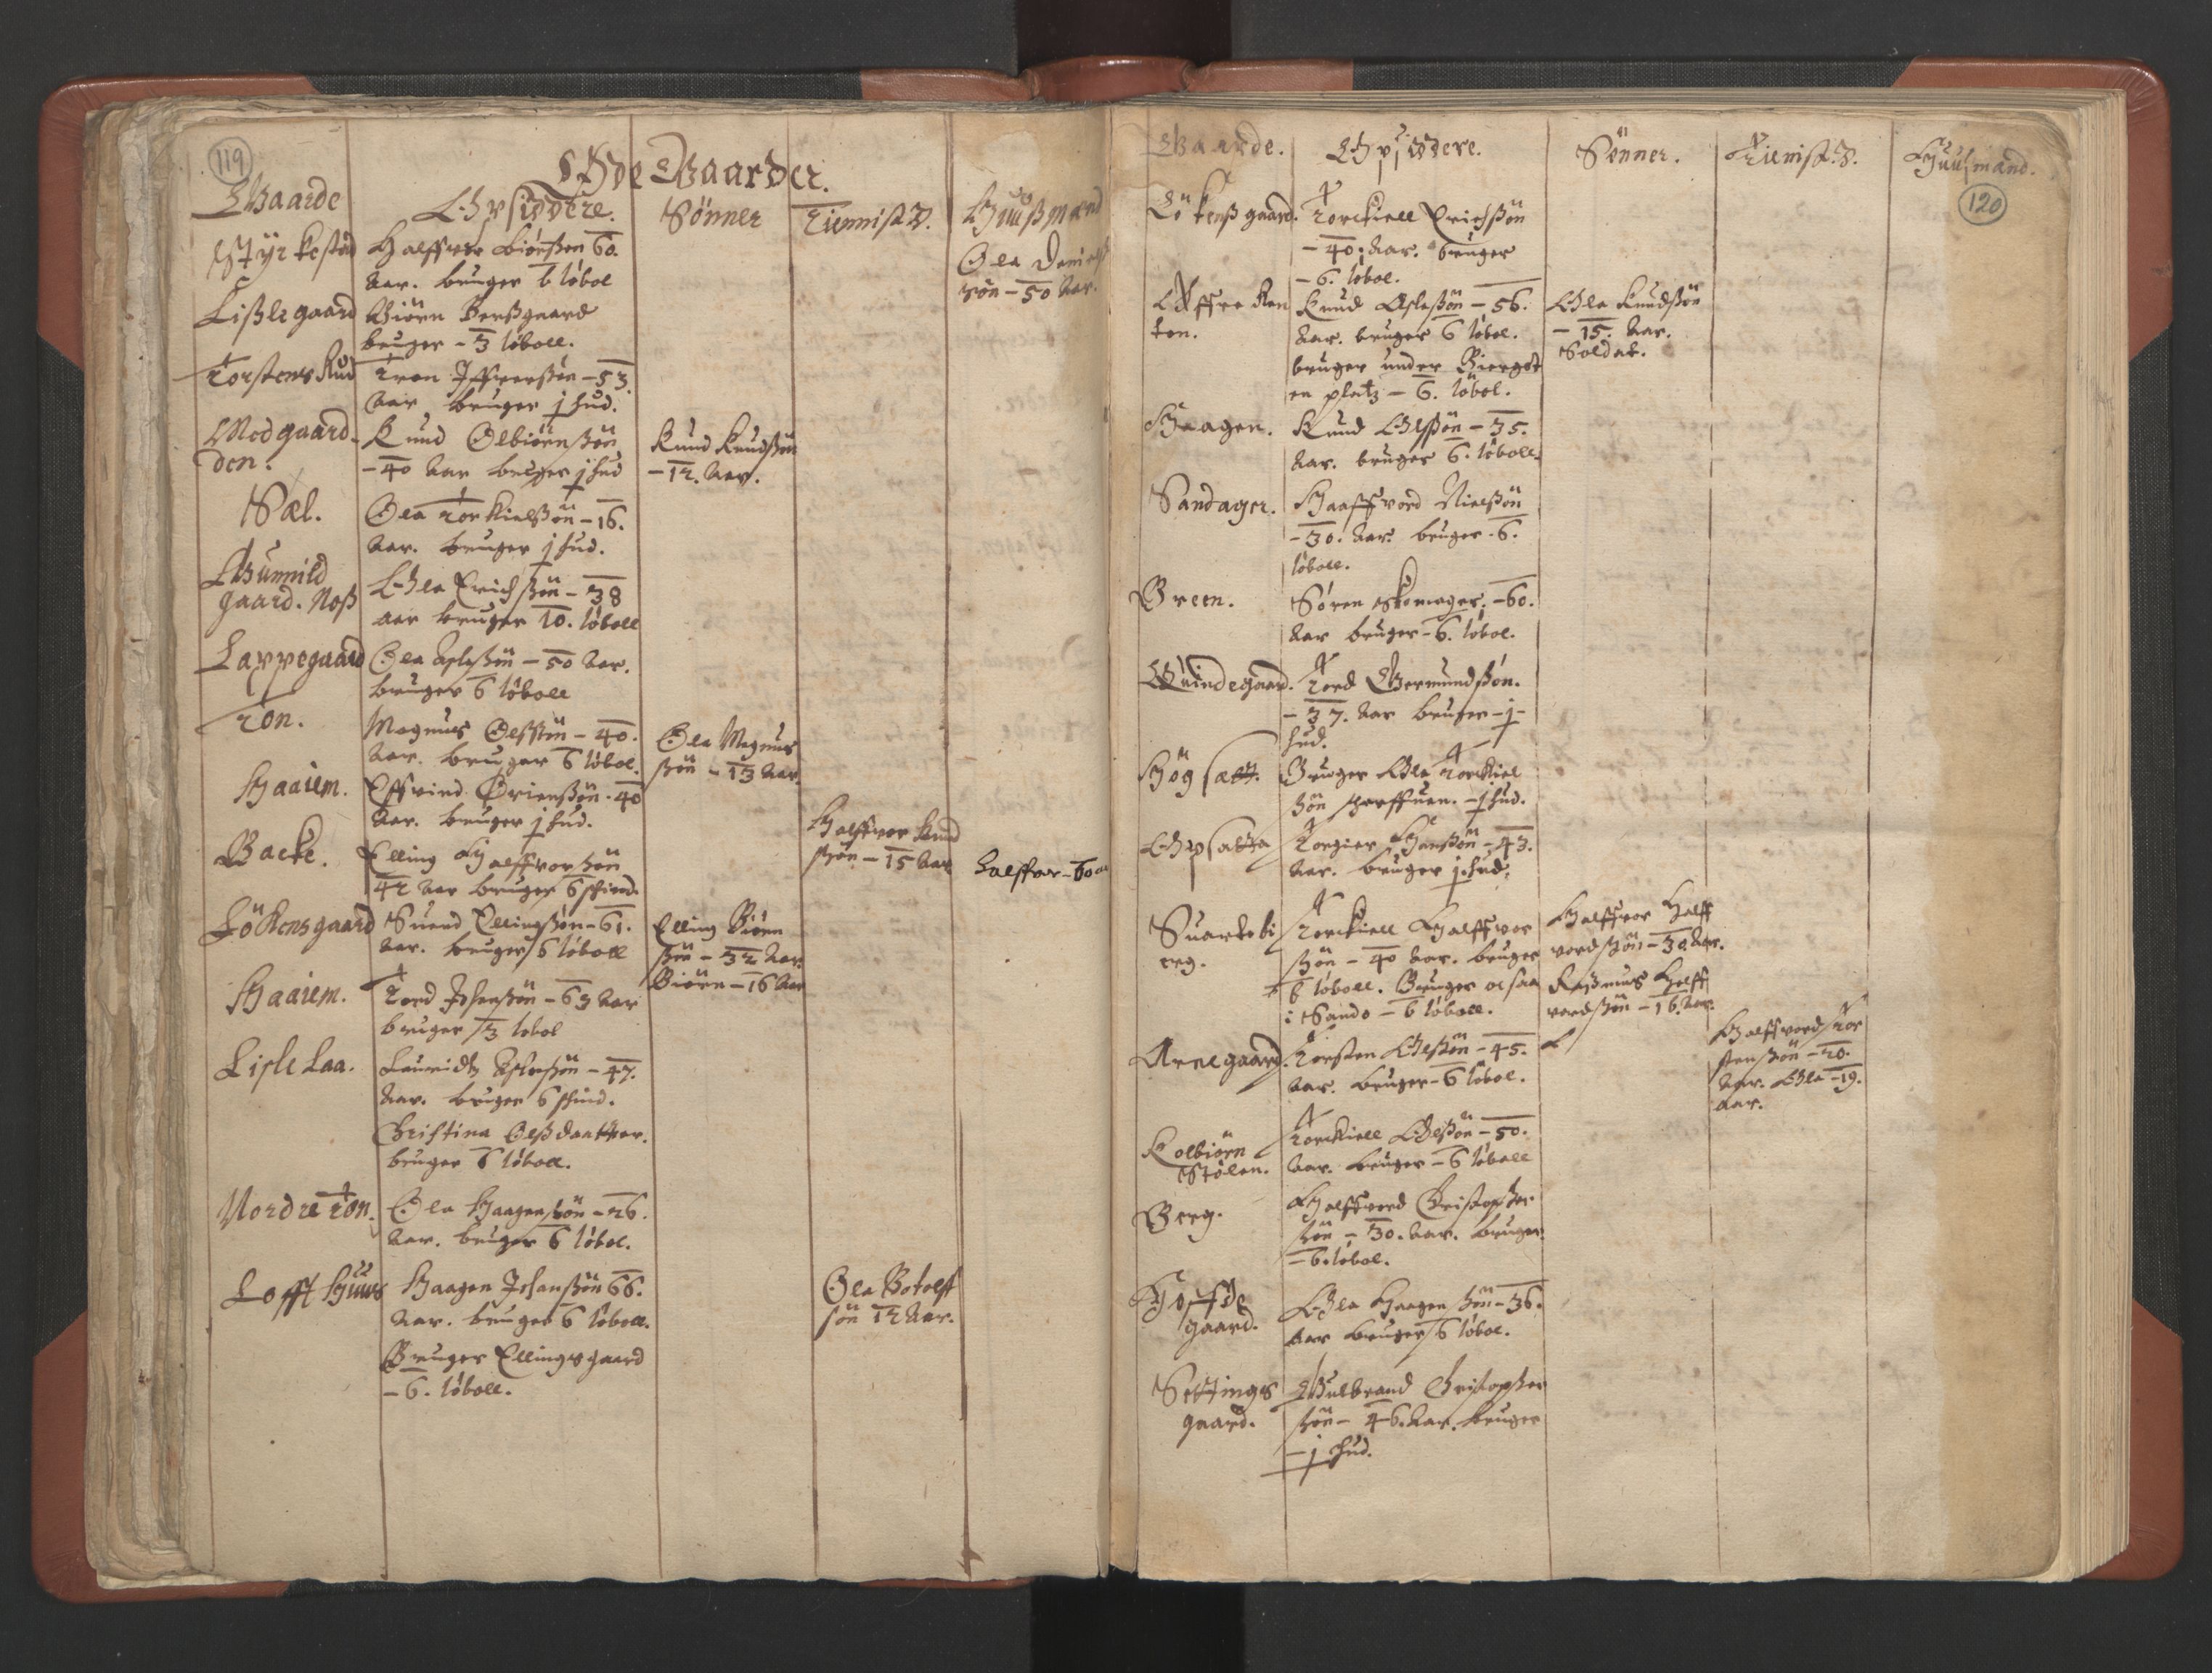 119
Øde Gaarder.
Gaarde
Opsiddere.
Sönner
Tiennist D.
Huußmænd
Styrkestød
Halffvor Biörnßen 60.
Aar. bruger 6 löbol
Ola
sön – 50 Aar.
Lißlegaard
Biörn Berßgaard
bruger – 3 löboll.
Torstens Rud
Tron Iffverßön – 53.
Aar bruger j hud.
Modgaard-
den.
Knud Olbiörnßön
– 40 Aar bruger j hud
Knud Knudßön
– 12. Aar.
Sæl.
Ola Torkielßön – 16.
Aar. bruger j hud.
Gunnild
gaard. Noß
Ola Erichßön – 38
aar bruger 10. löboll
Lappegaard
Ola Aslaßön – 50 Aar.
bruger 6 löboll
Tön.
Magnus Olßön – 40.
Aar. bruger 6 löbol.
Ola Magnus
ßön – 13 Aar.
Haaiem.
Effvind Örienßön – 40
Aar. bruger j hud.
Backe.
Elling Halffvorßön
42 Aar bruger 6 schind.
Halffvor Knud
ßön – 15 Aar
Halffvor – 60
Lökensgaard
Suend Ellingßön – 61.
Aar. bruger 6 löboll
Elling Biörn
ßön – 32 Aar.
Biörn – 16 Aar
Haaiem.
Tord Johanßön – 63 Aar
bruger 3 lobol
Lisle Laa.
Lauridtz Aslaßön – 47.
Aar. bruger 6 schind.
Christina Olßdaatter.
bruger 6 löboll.
Nordre Tön.
Ola Haagenßön – 26.
Aar. bruger 6 löbol.
Lofft Huus
Haagen Johanßön 66.
Aar. bruger 6 löboll.
Ola Botolff
sön 12 Aar.
Bruger Ellingsgaard
– 6. löboll.
120
Gaarde.
Opsiddere.
Sönner.
Tienist. D.
Huusmænd.
Lökenßgaard.
Torckiell Erichßön
– 40. Aar. bruger
– 6. löbol.
Öffre Ren
ton.
Knud Aslaßön – 56.
Aar. bruger 6 löbol.
bruger under
en platz – 6. löbol.
Ola Knudßön
– 15. Aar.
Soldat.
Haagen.
Knud Olßön – 35.
Aar. bruger 6. löboll.
Sandager.
Haaffvord Nielßön
– 30. Aar. bruger – 6.
löboll.
Breen.
Sören Skomager. – 60.
Aar bruger – 6. löbol.
Quindegaard.
Tord Germundßön.
– 37. Aar bruger – j –
hud.
Högsætt.
Bruger Ola Torckiel
ßön – j hud.
Opsatta
Torgier Hanßön – 43.
Aar. bruger j. hud.
Suartebi
erg.
Torckiell Halffvor
ßön – 40 Aar. bruger
6 löboll. Bruger ocsaa
i Sando – 6 löboll.
Halffvor Halff
vordßön – 30. Aar.
Raßmus Halff
vordßön – 16. Aar.
Arnegaard.
Torsten Olßön – 45.
Aar. bruger – 6 löbol.
Halffvord Tor
stenßön – 20.
Aar. Ola – 19.
Aar.
Kolbiörn
Stölen.
Torckiell Olßön – 50.
Aar. bruger – 6 löboll
Berg.
Halffvord Christopher
ßön – 30. Aar. bruger
– 6. löbol.
Hoffde
gaard.
Ola Haagenßön – 36.
Aar bruger 6 löbol.
Settings
gaard.
Gulbrand Christopher
ßön – 46. Aar. bruger
– j hud.